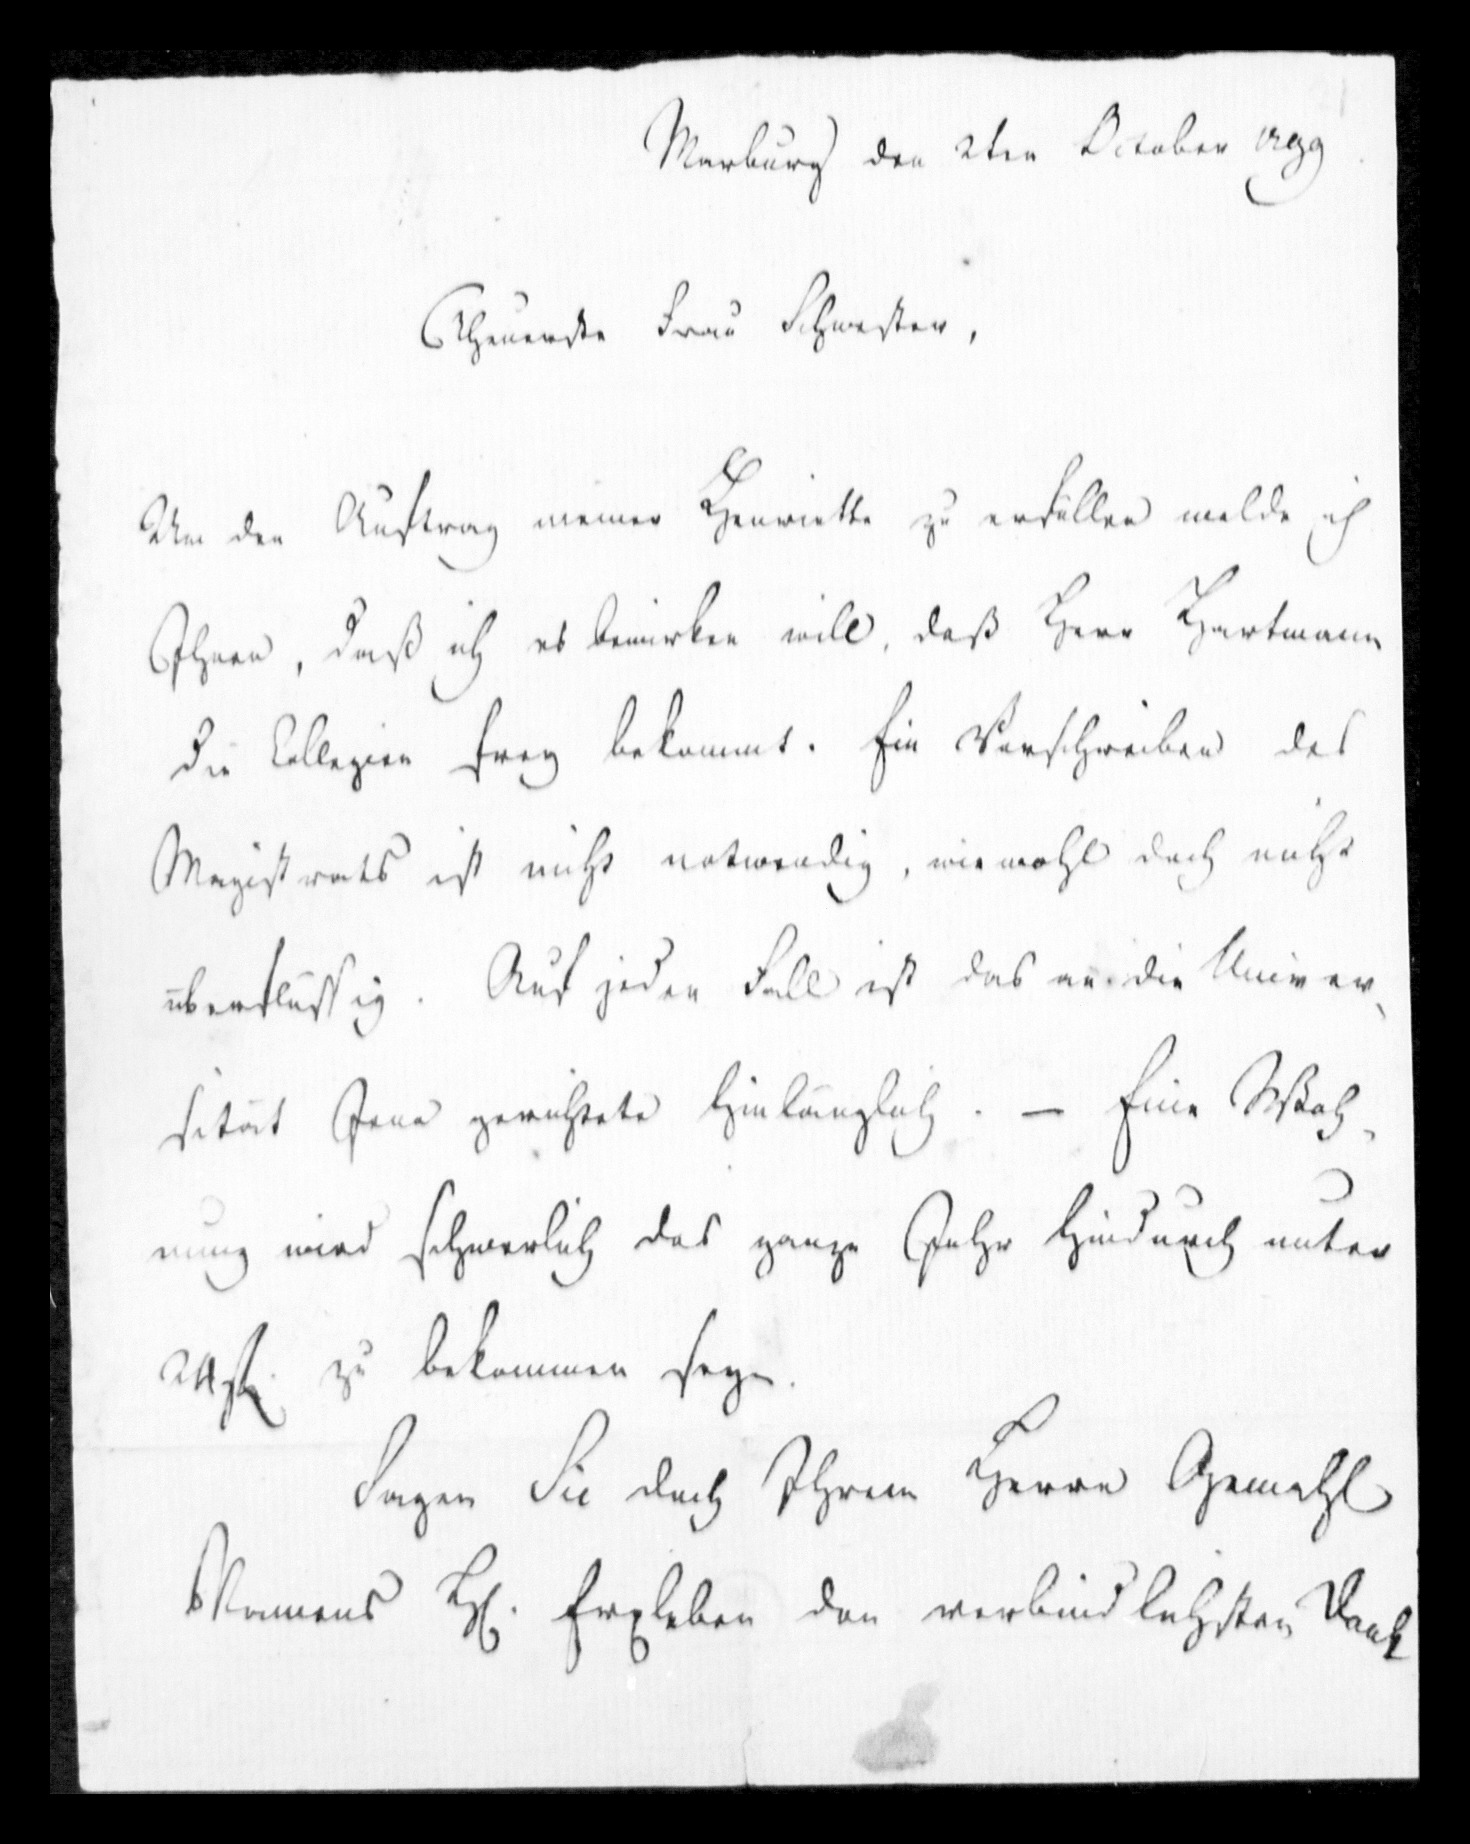 Marburg den 2ten October 1799
Theuerste Frau Schwester,
Um den Auftrag meiner Henriette zu erfüllen melde ich
Ihnen, daß ich es bewirken will, daß Herr Hartmann
die Collegien frey bekommt. Ein Vorschreiben des
Magistrats ist nicht notwendig, wiewohl doch nicht
überflüssig. Auf jeden Fall ist das an die Univer-
sität Jena gerichtete hinlänglich. — Eine Woh-
nung wird schwerlich das ganze Jahr hindurch unter
24 zu bekommen seyn.
Sagen Sie doch Ihrem Herrn Gemahl
Namens H. Erxleben den verbindlichsten Dank